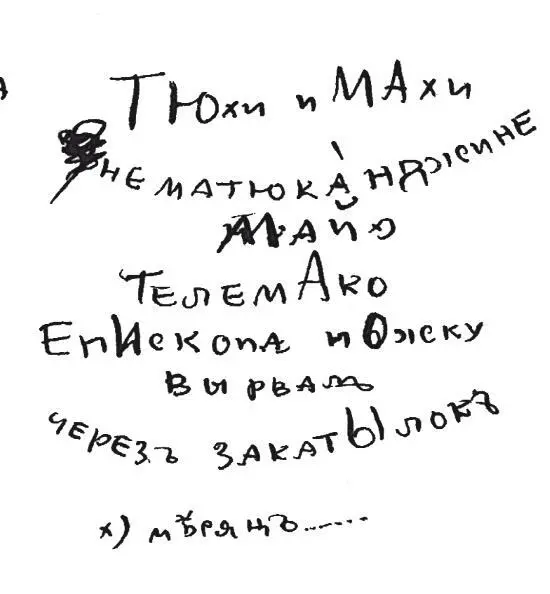 Тюхи и МАхи
не матюка́нджине
майо
ТелемАко
ЕпИскопа и Ожску
вырвал
черезъ закатЫлокъ
х) мѣрянъ......